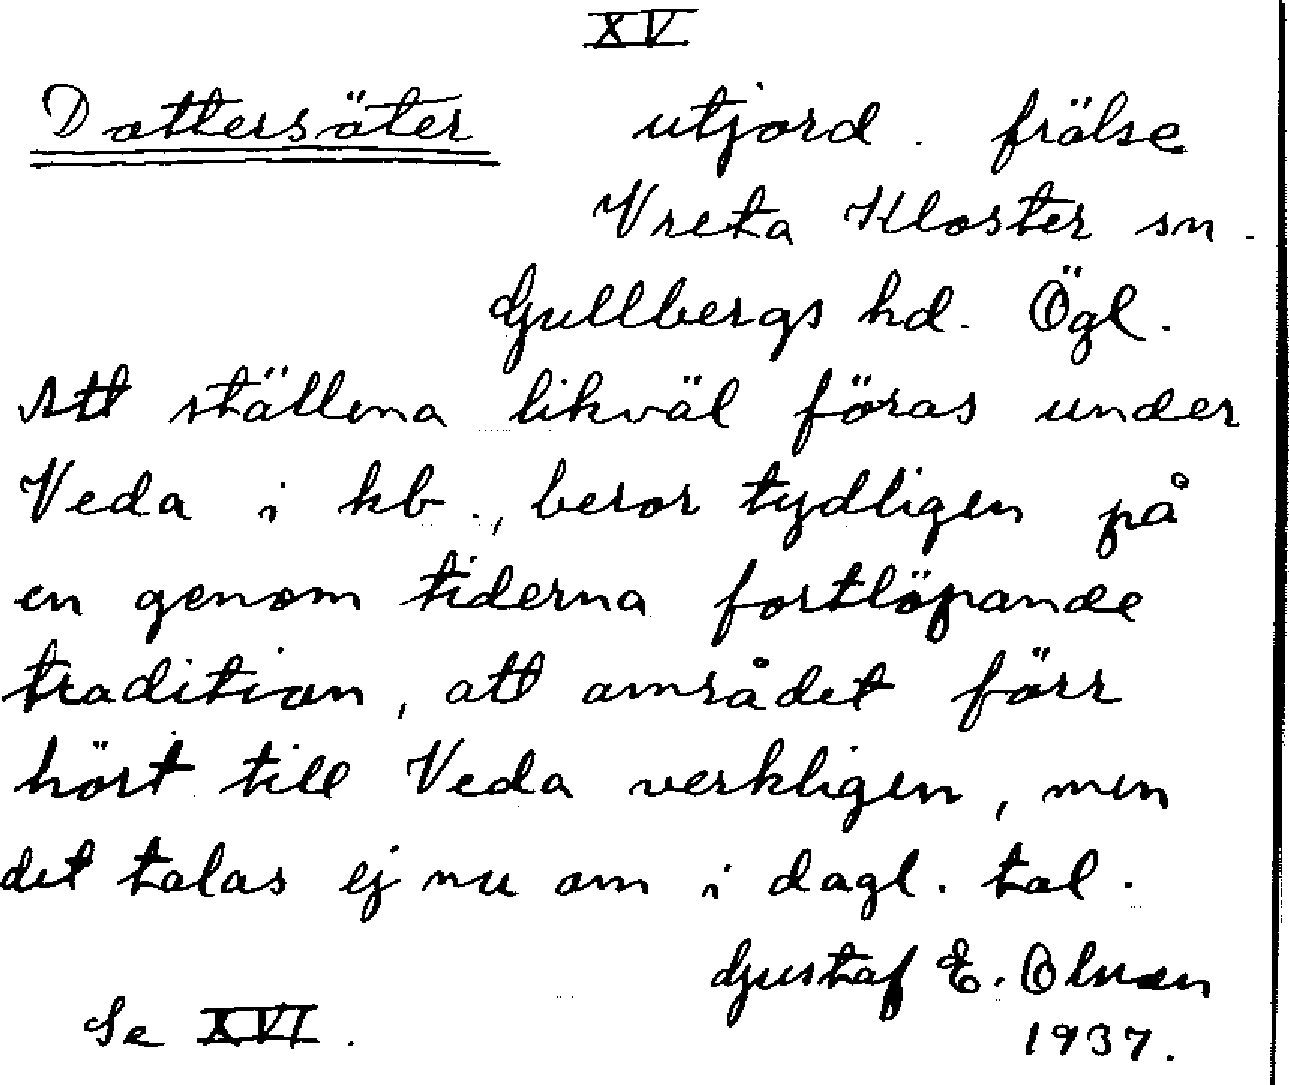 XV
Dottersäter utjord. frälse
Vreta Kloster sn.
Gullbergs hd. Ögl.
Att ställena likväl föras under
Veda i kb., beror tydligen på
en genom tiderna fortlöpande
tradition, att området förr
hört till Veda verkligen, men
det talas ej nu om i dagl. tal.
Gustaf E. Olman
Se XVI. 1937.